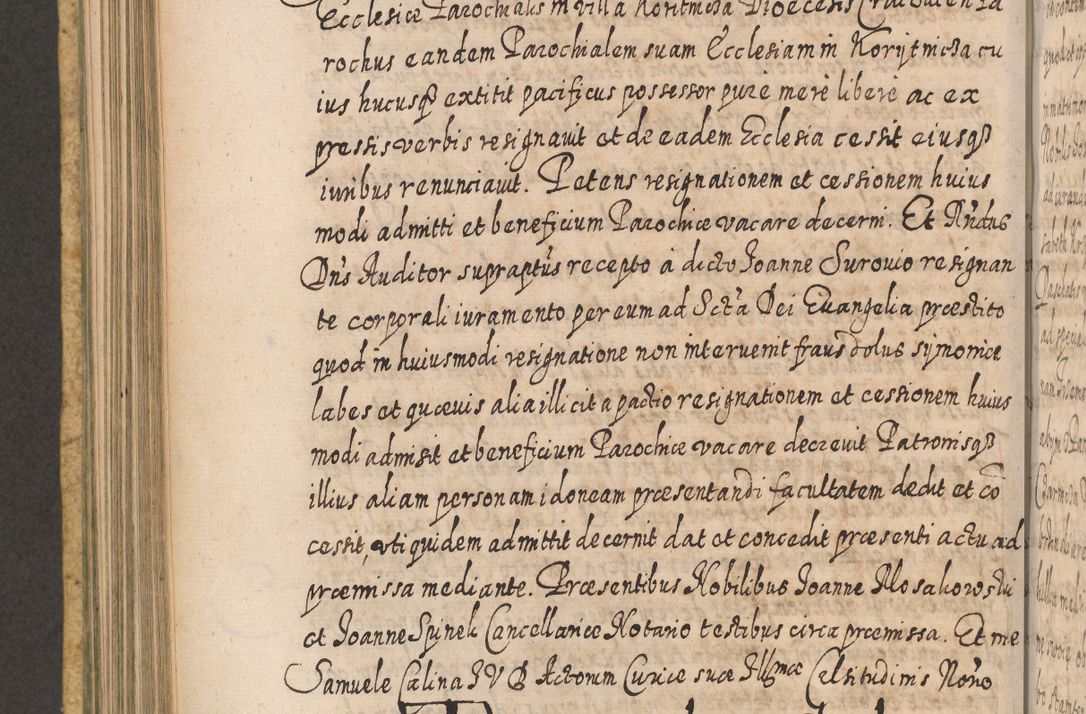 Ecclesiæ Parochialis in villa Koritnicza Dioecesis Cracovien Pa
rochus eandem Parochialem suam Ecclesiam in Korytnicza cu
ius hucusq extitit pacificus possessor pure mere libere ac ex
pressis verbis resignavit et de eadem Ecclesia cessit eiusq
iuribus renunciavit. Petens resignationem et cessionem huius
modi admitti et beneficium Parochiæ vacare decerni. Et Rndus
Dns Auditor supraptus recepto à dicto Joanne Surovio resignan
te corporali iuramento per eum ad Scta Dei Euangelia præstito
quod in huiusmodi resignatione non intervenit fraus dolus symoniæ
labes et quævis alia illicita pactio resignationem et cessionem huius
modi admisit et beneficium Parochiæ vacare decrevit Patronisq
illius aliam personam idoneam præsentandi facultatem dedit et co
cessit, vti quidem admittit decernit dat et concedit præsenti actu ad
præmissa mediante. Præsentibus Nobilibus Joanne Mosakowski
et Joanne Spinek Cancellariæ Notario testibus circa præmissa. Et me
Samuele Calina JVD Actorum Curiæ suæ Illmæ Celsitudinis Notro